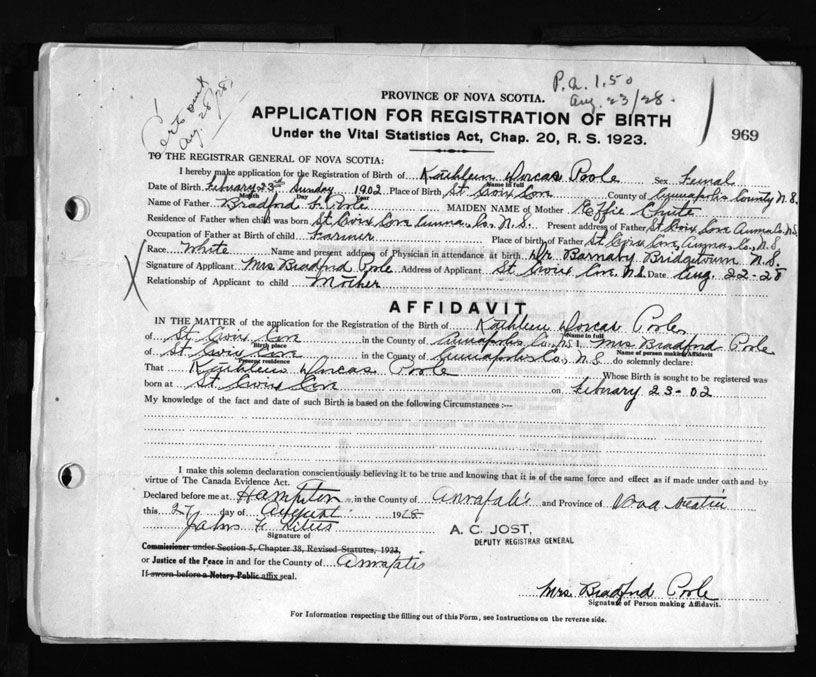 P.A. 1.50
Aug. 23/28.
Aug. 28/28
PROVINCE OF NOVA SCOTIA.
APPLICATION FOR REGISTRATION OF BIRTH
Under the Vital Statistics Act, Chap. 20, R. S. 1923.
969
TO THE REGISTRAR GENERAL OF NOVA SCOTIA:
I hereby make application for the Registration of Birth of Kathleen Dorcas Poole Sex Femal
Name in full
Date of Birth February 23rd Sunday 1902 Place of Birth St Croix Cove County of Annapolis County N.S.
Month Day Year
Name of Father Bradford F. Poole MAIDEN NAME of Mother Effie Chute
Residence of Father when child was born St Croix Cove Anna. Co. N.S. Present address of Father St Croix Cove Anna Co. N.S.
Occupation of Father at Birth of child Farmer Place of birth of Father St Croix Cove, Anna. Co., N.S.
Race White Name and present address of Physician in attendance at birth Dr Barnaby Bridgetown N.S.
Signature of Applicant Mrs Bradford Poole Address of Applicant St Croix Cove N.S. Date Aug. 22-28
Relationship of Applicant to child Mother
AFFIDAVIT
IN THE MATTER of the application for the Registration of the Birth of Kathleen Dorcas Poole
Name in full
of St Croix Cove in the County of Annapolis Co, N.S I, Mrs Bradford Poole
Birth place
Name of person making Affidavit
of St Croix Cove in the County of Annapolis Co, N.S. do solemnly declare:
Present residence
That Kathleen Dorcas Poole Whose Birth is sought to be registered was
born at St Croix Cove on February 23-02
My knowledge of the fact and date of such Birth is based on the following Circumstances :--
I make this solemn declaration conscientiously believing it to be true and knowing that it is of the same force and effect as if made under oath and by
virtue of The Canada Evidence Act.
Declared before me at Hampton in the County of Annapolis and Province of Nova Scotia
this 27 day of August 1928
A. C. JOST,
DEPUTY REGISTRAR GENERAL
Signature of
Commissioner under Section 5, Chapter 38, Revised Statutes, 1923,
or Justice of the Peace in and for the County of Annapolis
If sworn before a Notary Public affix seal.
Mrs. Bradford Poole
Signature of Person making Affidavit.
For Information respecting the filling out of this Form, see Instructions on the reverse side.